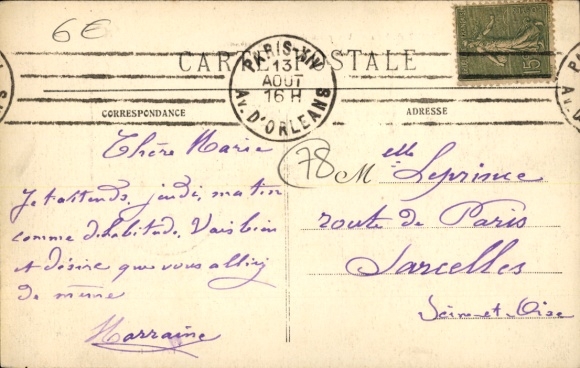 6€
CARTE POSTALE
PARIS-XIV
13
AOUT
16 H
AV. D'ORLEANS
15
CORRESPONDANCE
ADRESSE
Chère Marie
Je t'attends, jeudi, matin
comme d'habitude. Vais bien
et désire que vous alliez
de même
Marraine
78
Melle Leprince
route de Paris
Sarcelles
Seine-et-Oise